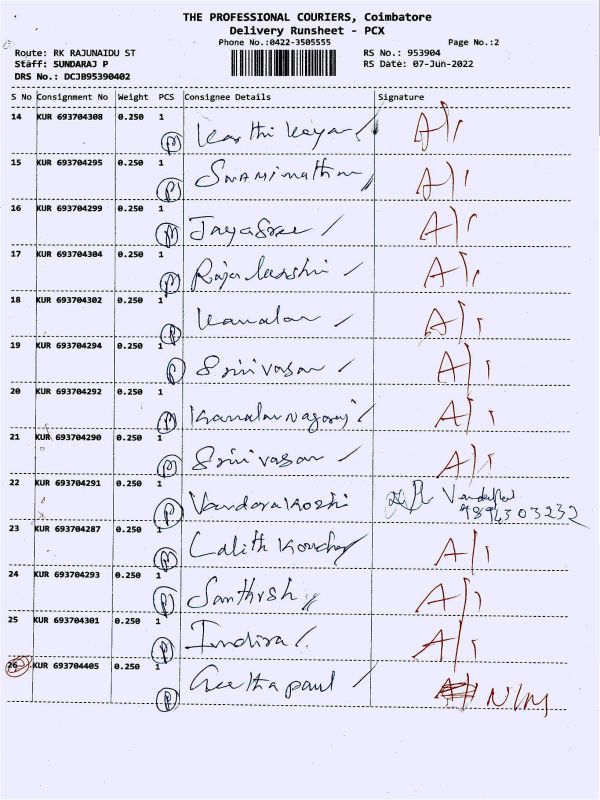 THE PROFESSIONAL COURIERS, Coimbatore
Delivery Runsheet - PCX
Phone No.:0422-3505555 Page No.:2
Route: RK RAJUNAIDU ST RS No.: 953904
Staff: SUNDARAJ P RS Date: 07-Jun-2022
DRS No.: DCJB95390402
S No Consignment No Weight PCS Consignee Details Signature
14 KUR 693704308 0.250 1
P Karthikeyan
15 KUR 693704295 0.250 1
P Swaminathan
16 KUR 693704299 0.250 1
P Jayasree
17 KUR 693704304 0.250 1
P Rajalakshmi
18 KUR 693704302 0.250 1
P
19 KUR 693704294 0.250 1
P Srinivasan
20 KUR 693704292 0.250 1
P
21 KUR 693704290 0.250 1
P Srinivasan
22 KUR 693704291 0.250 1
P 9894303232
23 KUR 693704287 0.250 1
P Lalith
24 KUR 693704293 0.250 1
P Santhosh
25 KUR 693704301 0.250 1
P Indira
26 KUR 693704405 0.250 1
P Geetha paul N/M